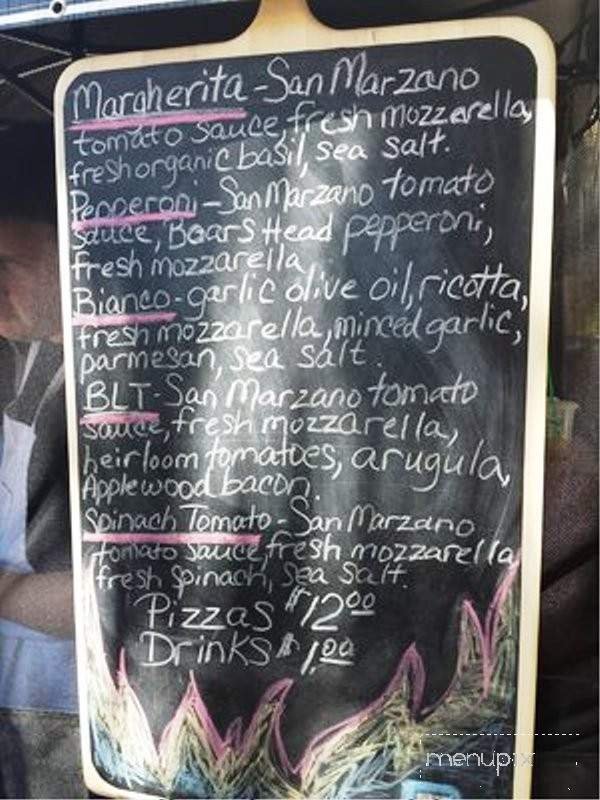 Margherita - San Marzano
tomato sauce, fresh mozzarella,
fresh organic basil, sea salt.
Pepperoni - San Marzano tomato
sauce, Boars Head pepperoni,
fresh mozzarella
Bianco - garlic olive oil, ricotta,
fresh mozzarella, minced garlic,
parmesan, sea salt.
BLT - San Marzano tomato
sauce, fresh mozzarella,
heirloom tomatoes, arugula,
Applewood bacon.
Spinach Tomato - San Marzano
tomato sauce, fresh mozzarella,
fresh spinach, sea salt.
Pizzas $12.00
Drinks $1.00
menupix